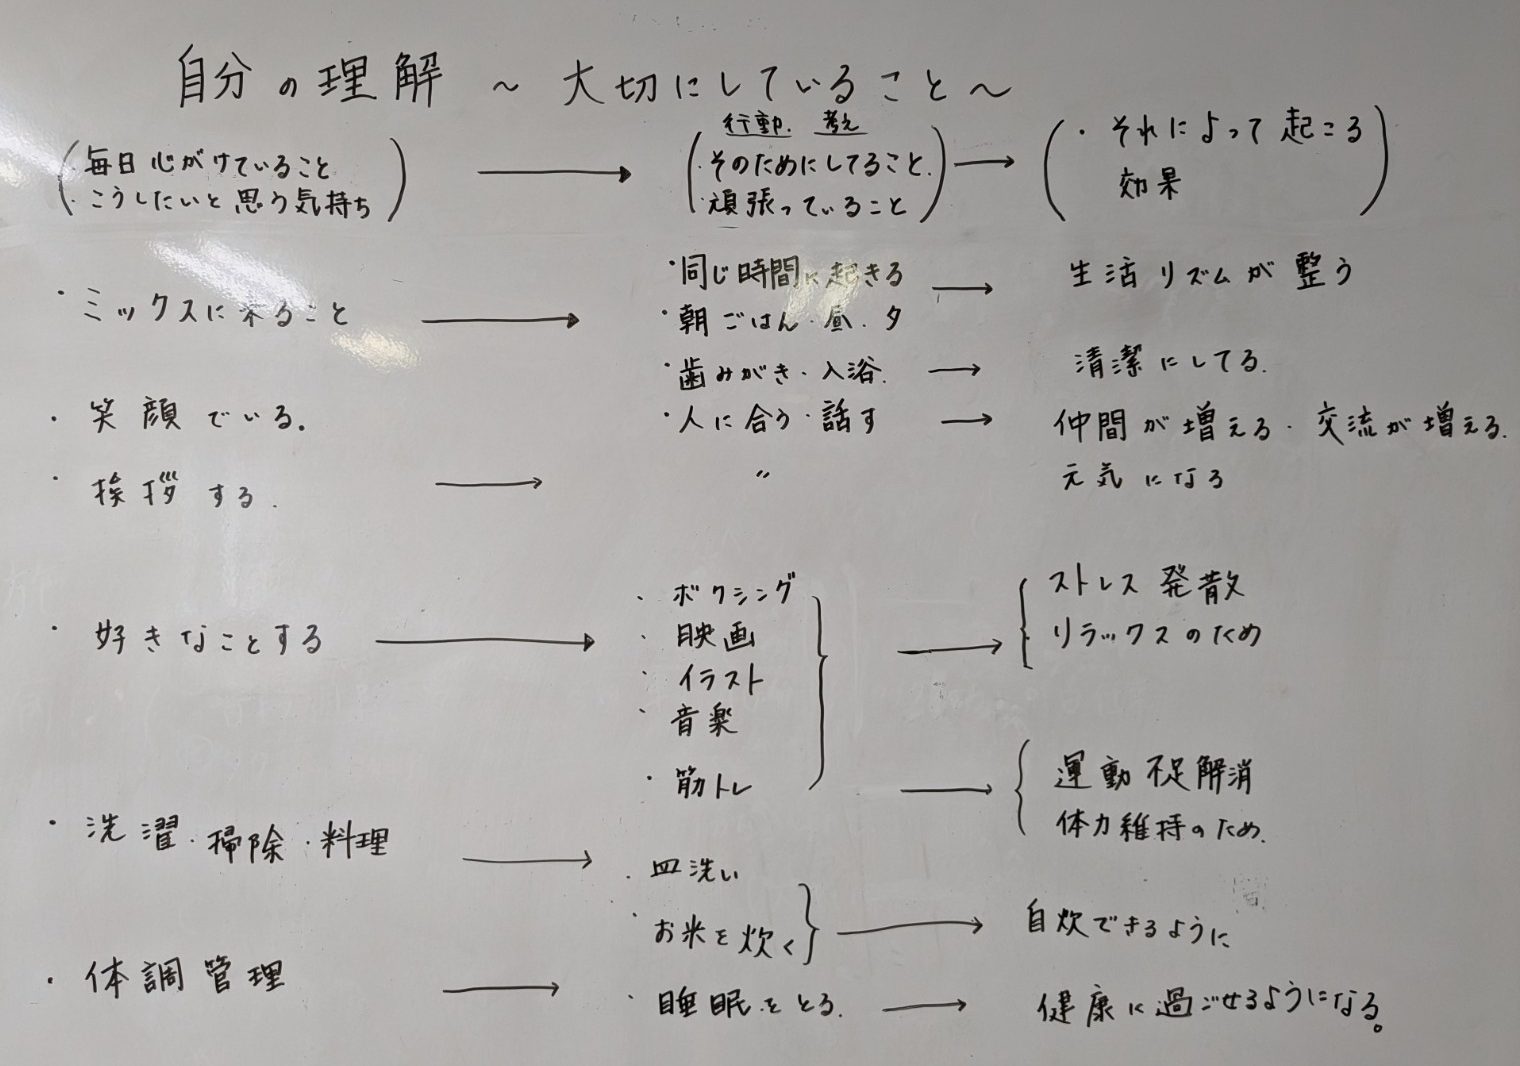 自分の理解 ～大切にしていること～
(・毎日心がけていること → 行動. 考え
・こうしたいと思う気持ち)
(・そのためにしてること.
・頑張っていること) →
(・それによって起こる
効果)
・ミックスに来ること →
・同じ時間に起きる → 生活リズムが整う
・朝ごはん・昼・夕
・歯みがき・入浴. → 清潔にしてる.
・笑顔でいる.
・人に合う・話す → 仲間が増える・交流が増える.
・挨拶する. → 〃 元気になる
・好きなことする →
・ボクシング
・映画
・イラスト
・音楽
→ ストレス発散
リラックスのため
・筋トレ
→ 運動不足解消
体力維持のため.
・洗濯・掃除・料理 →
・皿洗い
・お米を炊く → 自炊できるように
・体調管理 → ・睡眠をとる. → 健康に過ごせるようになる。